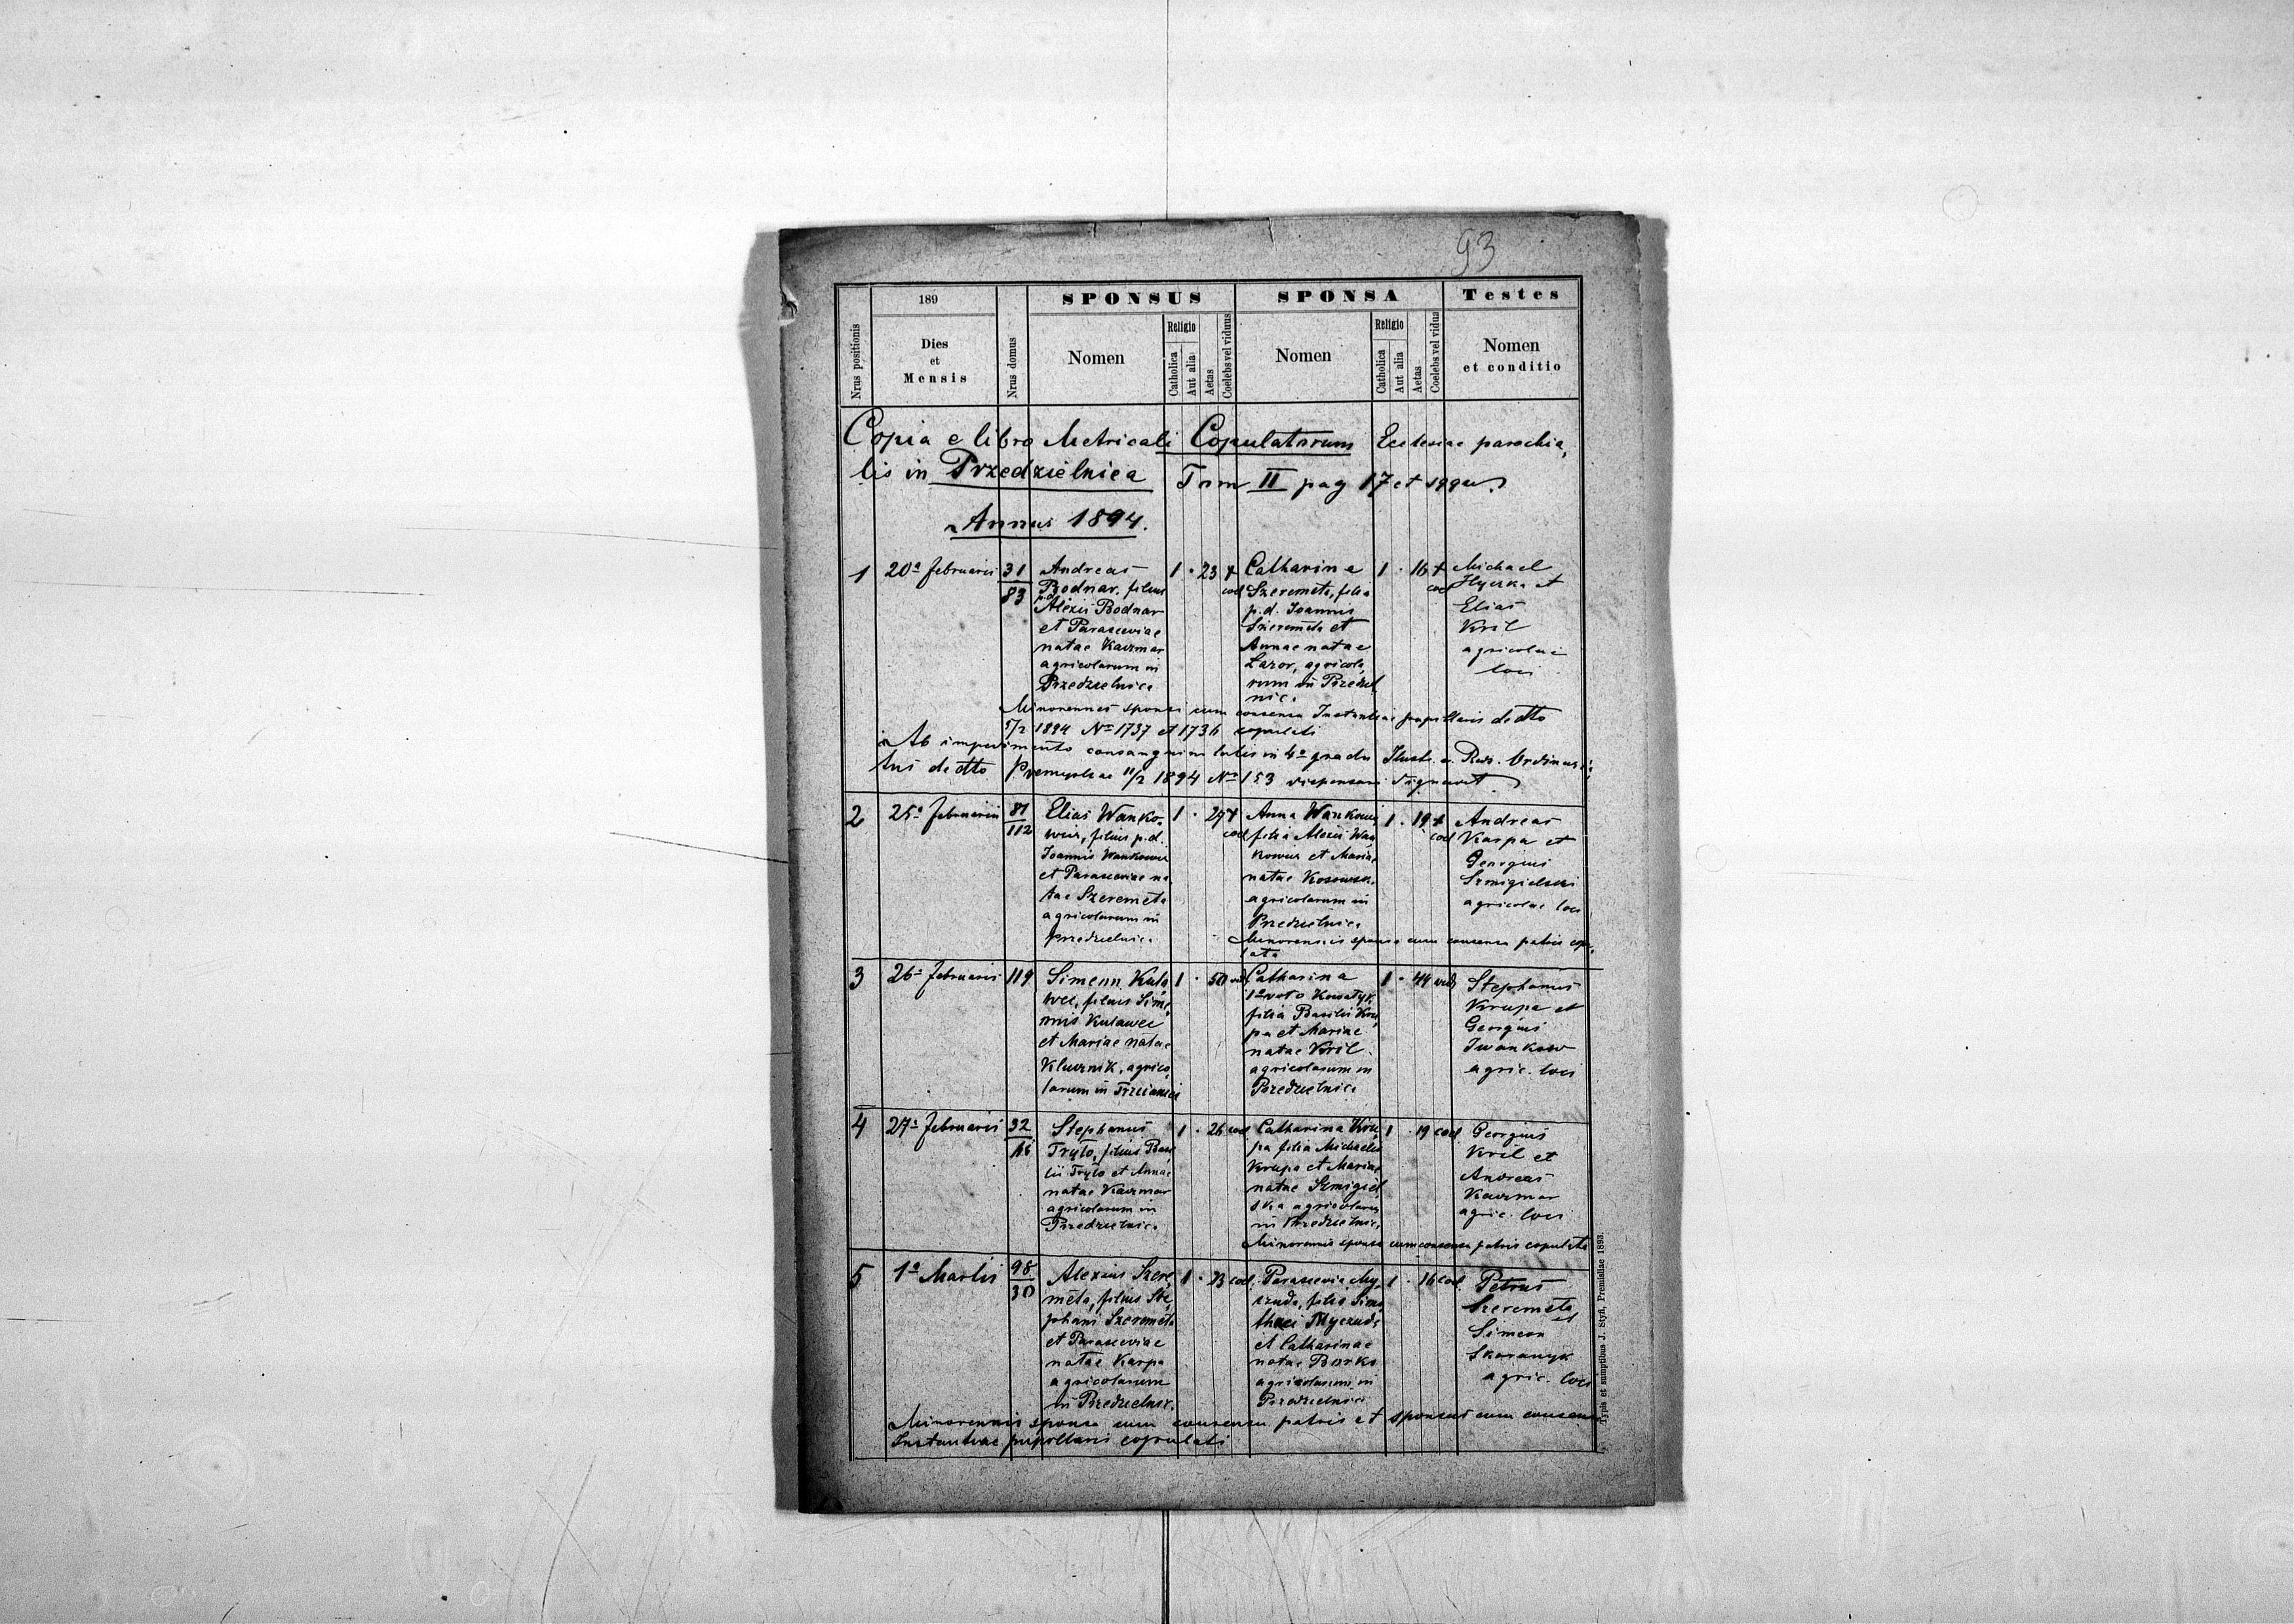 93
189
SPONSUS
SPONSA
Testes
Nrus positionis
Dies
et
Mensis
Nrus domus
Nomen
Religio
Catholica
Aut alia
Aetas
Coelebs vel viduus
Nomen
Religio
Catholica
Aut alia
Aetas
Coelebs vel vidua
Nomen
et conditio
Copia e libro Metricali Copulatorum Ecclesiae parochia,
lis in Przedzielnica Tom II pag 17 et
Annus 1894.
1
20ª februarii
31
83
Andreas
Bodnar, filius
p.d.
Alexii Bodnar
et Parasceviae
natae Kaczmar
agricolarum in
Przedzielnica
1 · 23
coel
Catharina
Szeremeta, filia
p.d. Joannis
Szeremeta et
Annae natae
Lazor, agricola,
rum in Przedziel
nica
1 · 16
coel
Michael
et
Elias
Kril
agricolae
loci
Minorennes sponsi cum consensu Instantiae pupillaris de dtto
5/2 1894 No 1737 et 1736 copulati
Ab impedimento consanguinitatis in 4º gradu Ordinaria,
tus de dtto 11/2 1894 No 153 dispensare dignavit
2
25ª februarii
81
112
Elias Wanko,
wicz, filius p.d.
Joannis Wankowicz
et Parasceviae na,
tae Szeremeta
agricolarum in
Przedzielnica
1 · 27
coel
Anna Wankowicz
filia Alexii Wan
kowicz et Mariae
natae
agricolarum in
Przedzielnica
1 · 19
coel
Andreas
Karpa et
Georgius
Szmigielski
agricolae loci
Minorennis sponsa cum consensu patris copu,
lata
3
26ª februarii
119
Simeon Kula
wec, filius Sime,
onis Kulawec
et Mariae natae
Klucznik, agrico,
larum in
1 · 50 vid
Catharina
1º voto
filia Basilii Kru,
pa et Mariae
natae Kril
agricolarum in
Przedzielnica
1 · 44 vid
Stephanus
Krupa et
Georgius
Iwankow
agric. loci
4
27ª februarii
32
Stephanus
Tryto, filius Basi
lii Tryto et Annae
natae Kaczmar
agricolarum in
Przedzielnica
1 · 26 coel
Catharina Kru,
pa filia Michaelis
Krupa et Mariae
natae Szmigiel
ska agricolarum
in Przedzielnica
1 · 19 coel
Georgius
Kril et
Andreas
Kaczmar
agric. loci
Minorennis sponsa cum consensu patris copulata
5
1ª Martii
98
30
Alexius Szere,
meta, filius Ste,
phani Szeremeta
et Parasceviae
natae Karpa
agricolarum
in Przedzielnic.
1 · 23 coel
Parascevia My,
czuda, filia Timo
thaei Myczuda
et Catharinae
natae Borko
agricolarum in
Przedzielnica
1 · 16 coel
Petrus
Szeremeta
et
Simeon
Skoranyk
agric. loci
Minorennis sponsa cum consensu patris et sponsus cum consensu
Instantiae pupillaris copulati
Typis et sumptibus J. Styfi, Premisliae 1893.